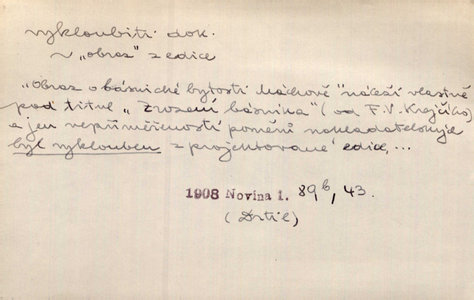 vykloubiti dok.
~ „obraz" z edice
„Obraz o básnické bytosti Máchově" náleží vlastně
pod titul „Zrození básníka" (od F. V. Krejčího)
a jen nepříměřeností poměrů nakladatelových
byl vyklouben z projektované edice, ...
1908 Novina 1. 89b, 43.
(Drtil)